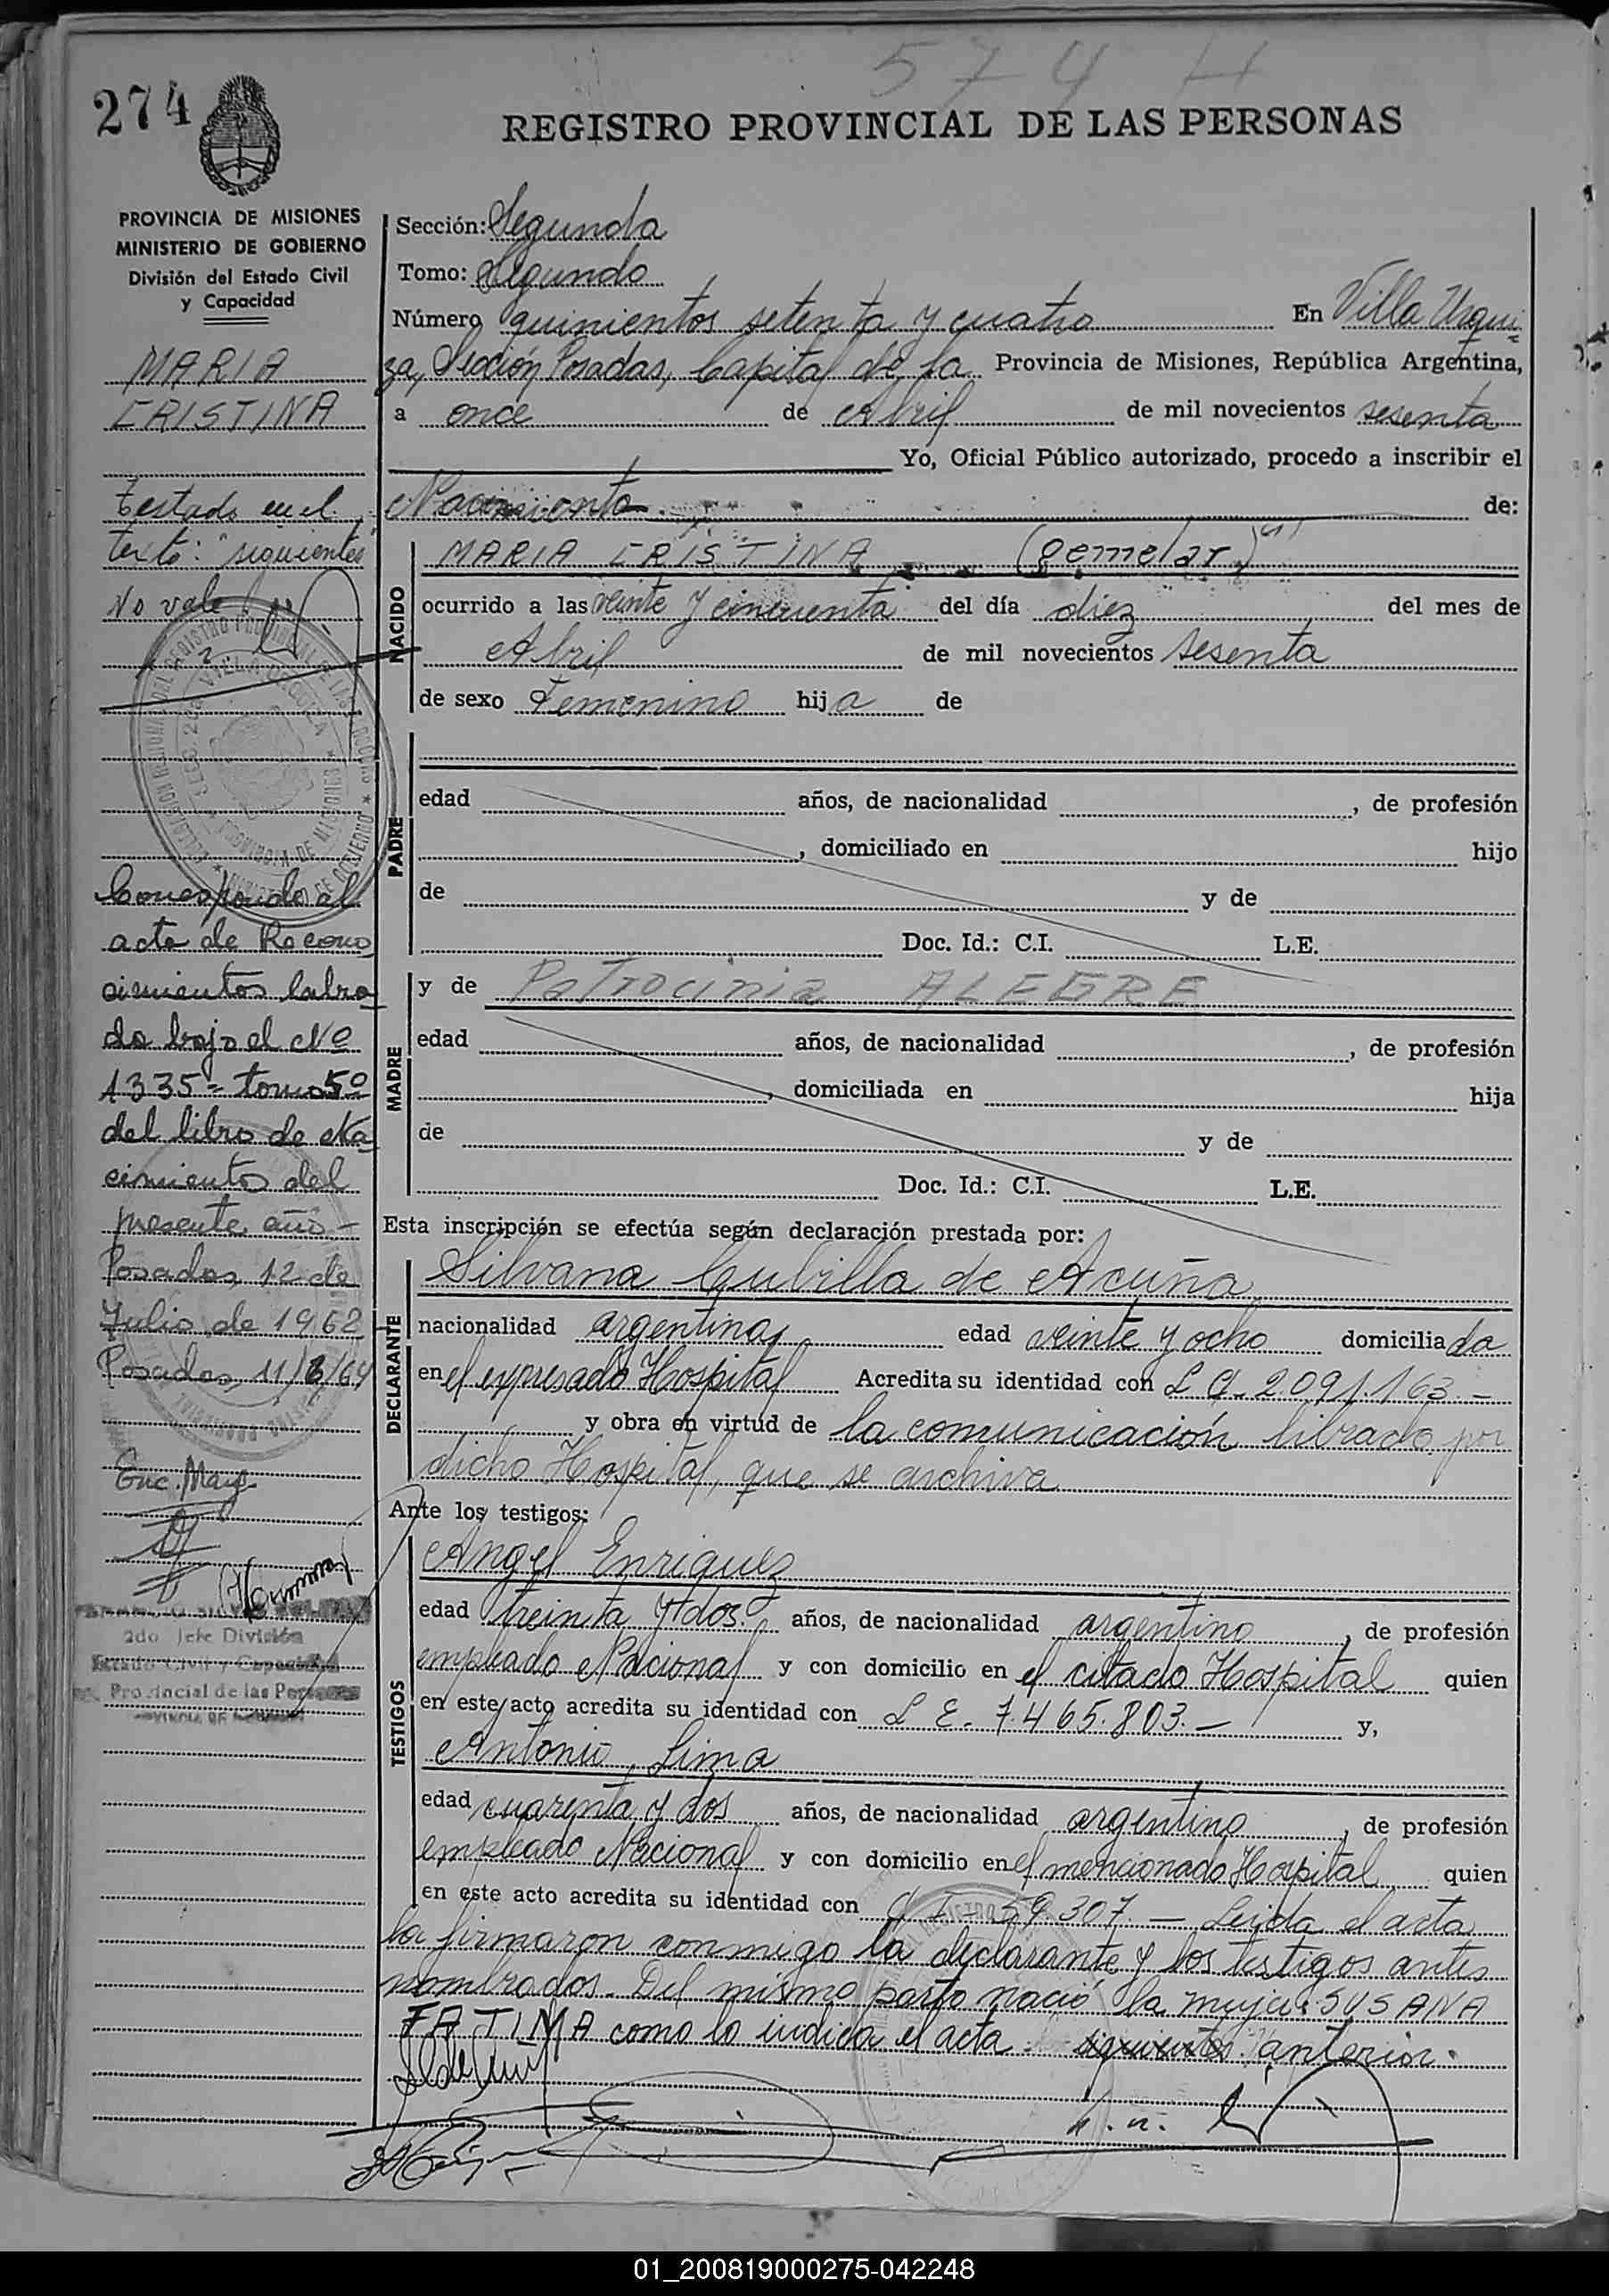 574 H
274
REGISTRO PROVINCIAL DE LAS PERSONAS
PROVINCIA DE MISIONES
MINISTERIO DE GOBIERNO
División del Estado Civil
y Capacidad
MARIA
CRISTINA
testado en el
texto: "siguientes"
No vale
Corresponde al
acta de Recono
cimientos labra
da bajo el Nº
1335 = tomo 5º
del libro de Na
cimientos del
presente año -
Posadas, 12 de
Julio de 1962
Posadas, 11/8/64
Enc. May.
2do Jefe División
Estado Civil y Capacidad
Provincial de las Personas
Sección: Segunda
Tomo: Segundo
Número quinientos setenta y cuatro En Villa Urqui
za, Sección Posadas, Capital de la Provincia de Misiones, República Argentina,
a once de Abril de mil novecientos sesenta
Yo, Oficial Público autorizado, procedo a inscribir el
Nacimiento. de:
NACIDO
MARIA CRISTINA (gemelar)
ocurrido a las veinte y cincuenta del día diez del mes de
Abril de mil novecientos sesenta
de sexo Femenino hija de
PADRE
edad años, de nacionalidad , de profesión
, domiciliado en hijo
de y de
Doc. Id.: C.I. L.E.
MADRE
y de Patrocinia ALEGRE
edad años, de nacionalidad , de profesión
, domiciliada en hija
de y de
Doc. Id.: C.I. L.E.
Esta inscripción se efectúa según declaración prestada por:
DECLARANTE
Silvana Cubilla de Acuña
nacionalidad argentina, edad veinte y ocho domiciliada
en el expresado Hospital Acredita su identidad con L C. 2.091.163.-
y obra en virtud de la comunicación librada por
dicho Hospital, que se archiva
Ante los testigos:
TESTIGOS
Angel Enriquez
edad treinta y dos años, de nacionalidad argentino, de profesión
empleado Nacional y con domicilio en el citado Hospital quien
en este acto acredita su identidad con L E. 7.465.803.- y,
Antonio Lima
edad cuarenta y dos años, de nacionalidad argentino, de profesión
empleado Nacional y con domicilio en el mencionado Hospital quien
en este acto acredita su identidad con C I - 59.307. - Leída el acta
la firmaron conmigo la declarante y los testigos antes
nombrados. Del mismo parto nació la mujer SUSANA
FATIMA como lo indica el acta siguientes anterior.
01_200819000275-042248